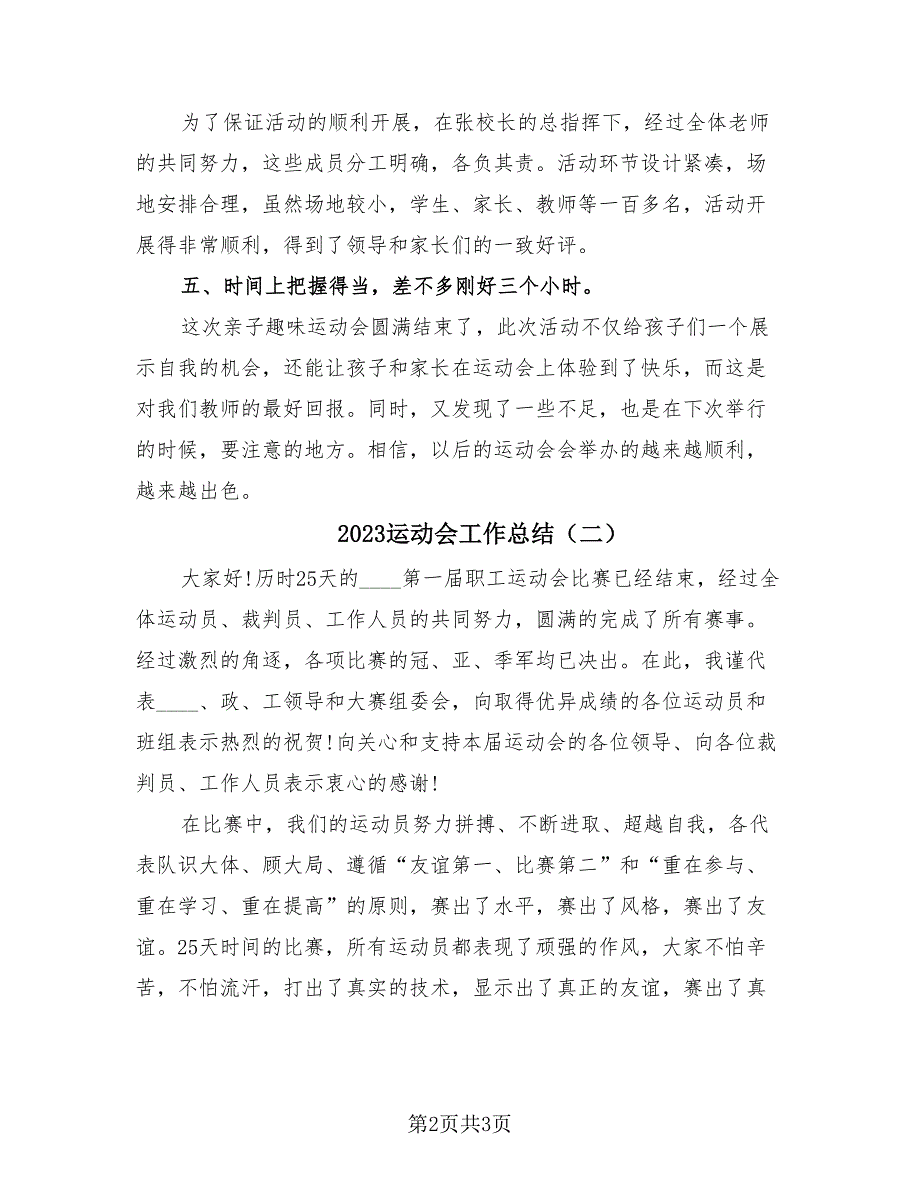 为了保证活动的顺利开展，在张校长的总指挥下，经过全体老师
的共同努力，这些成员分工明确，各负其责。活动环节设计紧凑，场
地安排合理，虽然场地较小，学生、家长、教师等一百多名，活动开
展得非常顺利，得到了领导和家长们的一致好评。
五、时间上把握得当，差不多刚好三个小时。
这次亲子趣味运动会圆满结束了，此次活动不仅给孩子们一个展
示自我的机会，还能让孩子和家长在运动会上体验到了快乐，而这是
对我们教师的最好回报。同时，又发现了一些不足，也是在下次举行
的时候，要注意的地方。相信，以后的运动会会举办的越来越顺利，
越来越出色。
2023运动会工作总结（二）
大家好!历时25天的____第一届职工运动会比赛已经结束，经过全
体运动员、裁判员、工作人员的共同努力，圆满的完成了所有赛事。
经过激烈的角逐，各项比赛的冠、亚、季军均已决出。在此，我谨代
表____、政、工领导和大赛组委会，向取得优异成绩的各位运动员和
班组表示热烈的祝贺!向关心和支持本届运动会的各位领导、向各位裁
判员、工作人员表示衷心的感谢!
在比赛中，我们的运动员努力拼搏、不断进取、超越自我，各代
表队识大体、顾大局、遵循“友谊第一、比赛第二”和“重在参与、
重在学习、重在提高”的原则，赛出了水平，赛出了风格，赛出了友
谊。25天时间的比赛，所有运动员都表现了顽强的作风，大家不怕辛
苦，不怕流汗，打出了真实的技术，显示出了真正的友谊，赛出了真
第2页共3页